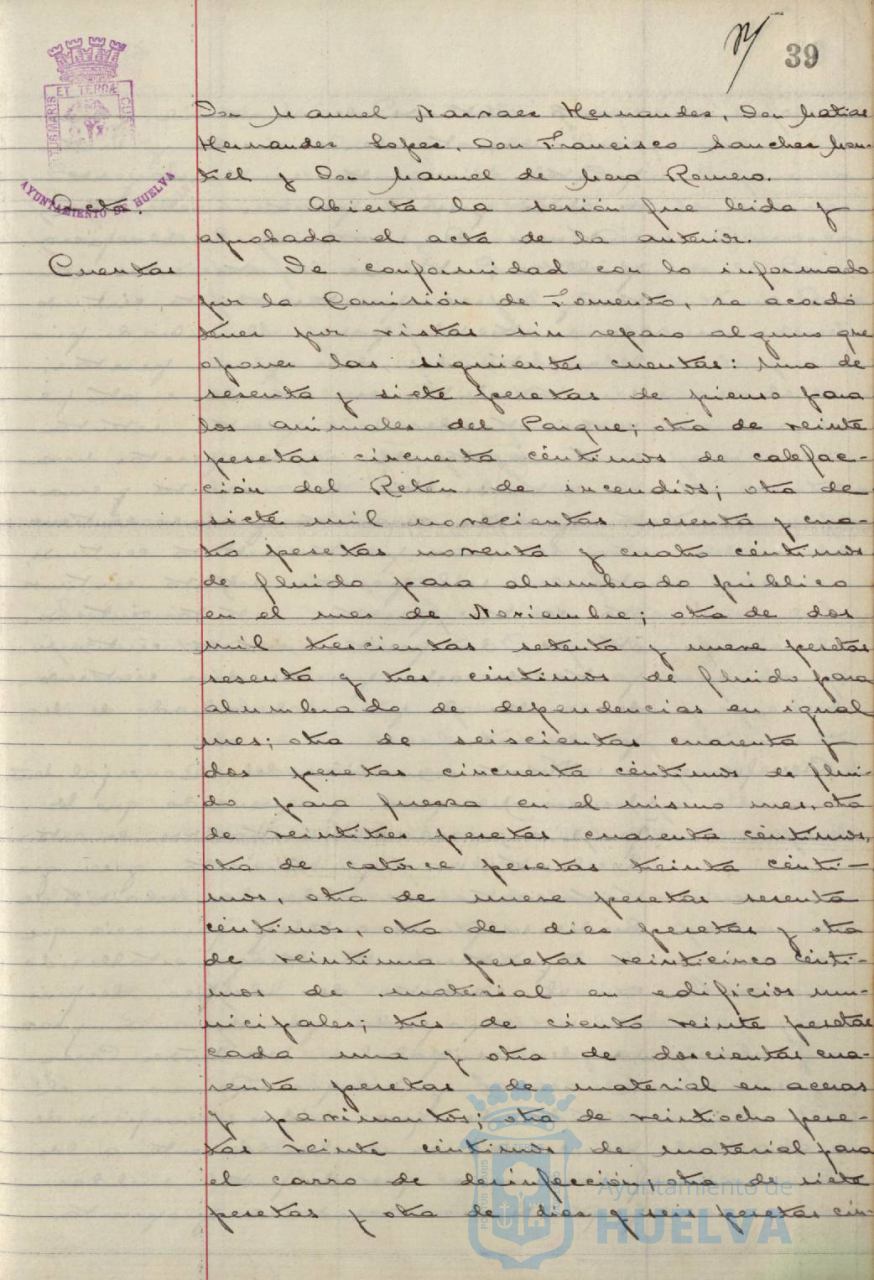 39
ET TERRÆ
AYUNTAMIENTO DE HUELVA
Don Manuel Narvaez Hernandez, Don Matias
Hernandez Lopez, Don Francisco Sanchez Mon-
tiel y Don Manuel de Mora Romero.
Acta.
Abierta la sesión fue leida y
aprobada el acta de la anterior.
Cuentas
De conformidad con lo informado
por la Comisión de Fomento, se acordó
tener por vistas sin reparo alguno que
oponer las siguientes cuentas: una de
sesenta y siete pesetas de pienso para
los animales del Parque; otra de veinte
pesetas cincuenta céntimos de calefac-
ción del Reten de incendios; otra de
siete mil novecientas sesenta y cua-
tro pesetas noventa y cuatro céntimos
de fluido para alumbrado público
en el mes de Noviembre; otra de dos
mil trescientas setenta y nueve pesetas
sesenta y tres céntimos de fluido para
alumbrado de dependencias en igual
mes; otra de seiscientas cuarenta y
dos pesetas cincuenta céntimos de flui-
do para fuerza en el mismo mes, otra
de veintitres pesetas cuarenta céntimos,
otra de catorce pesetas treinta cénti-
mos, otra de nueve pesetas sesenta
céntimos, otra de diez pesetas y otra
de veintiuna pesetas veinticinco cénti-
mos de material en edificios mu-
nicipales; tres de ciento veinte pesetas
cada una y otra de doscientas cua-
renta pesetas de material en aceras
y pavimentos; otra de veintiocho pese-
tas veinte céntimos de material para
el carro de desinfección; otra de siete
pesetas y otra de diez y seis pesetas cin-
Ayuntamiento de
HUELVA